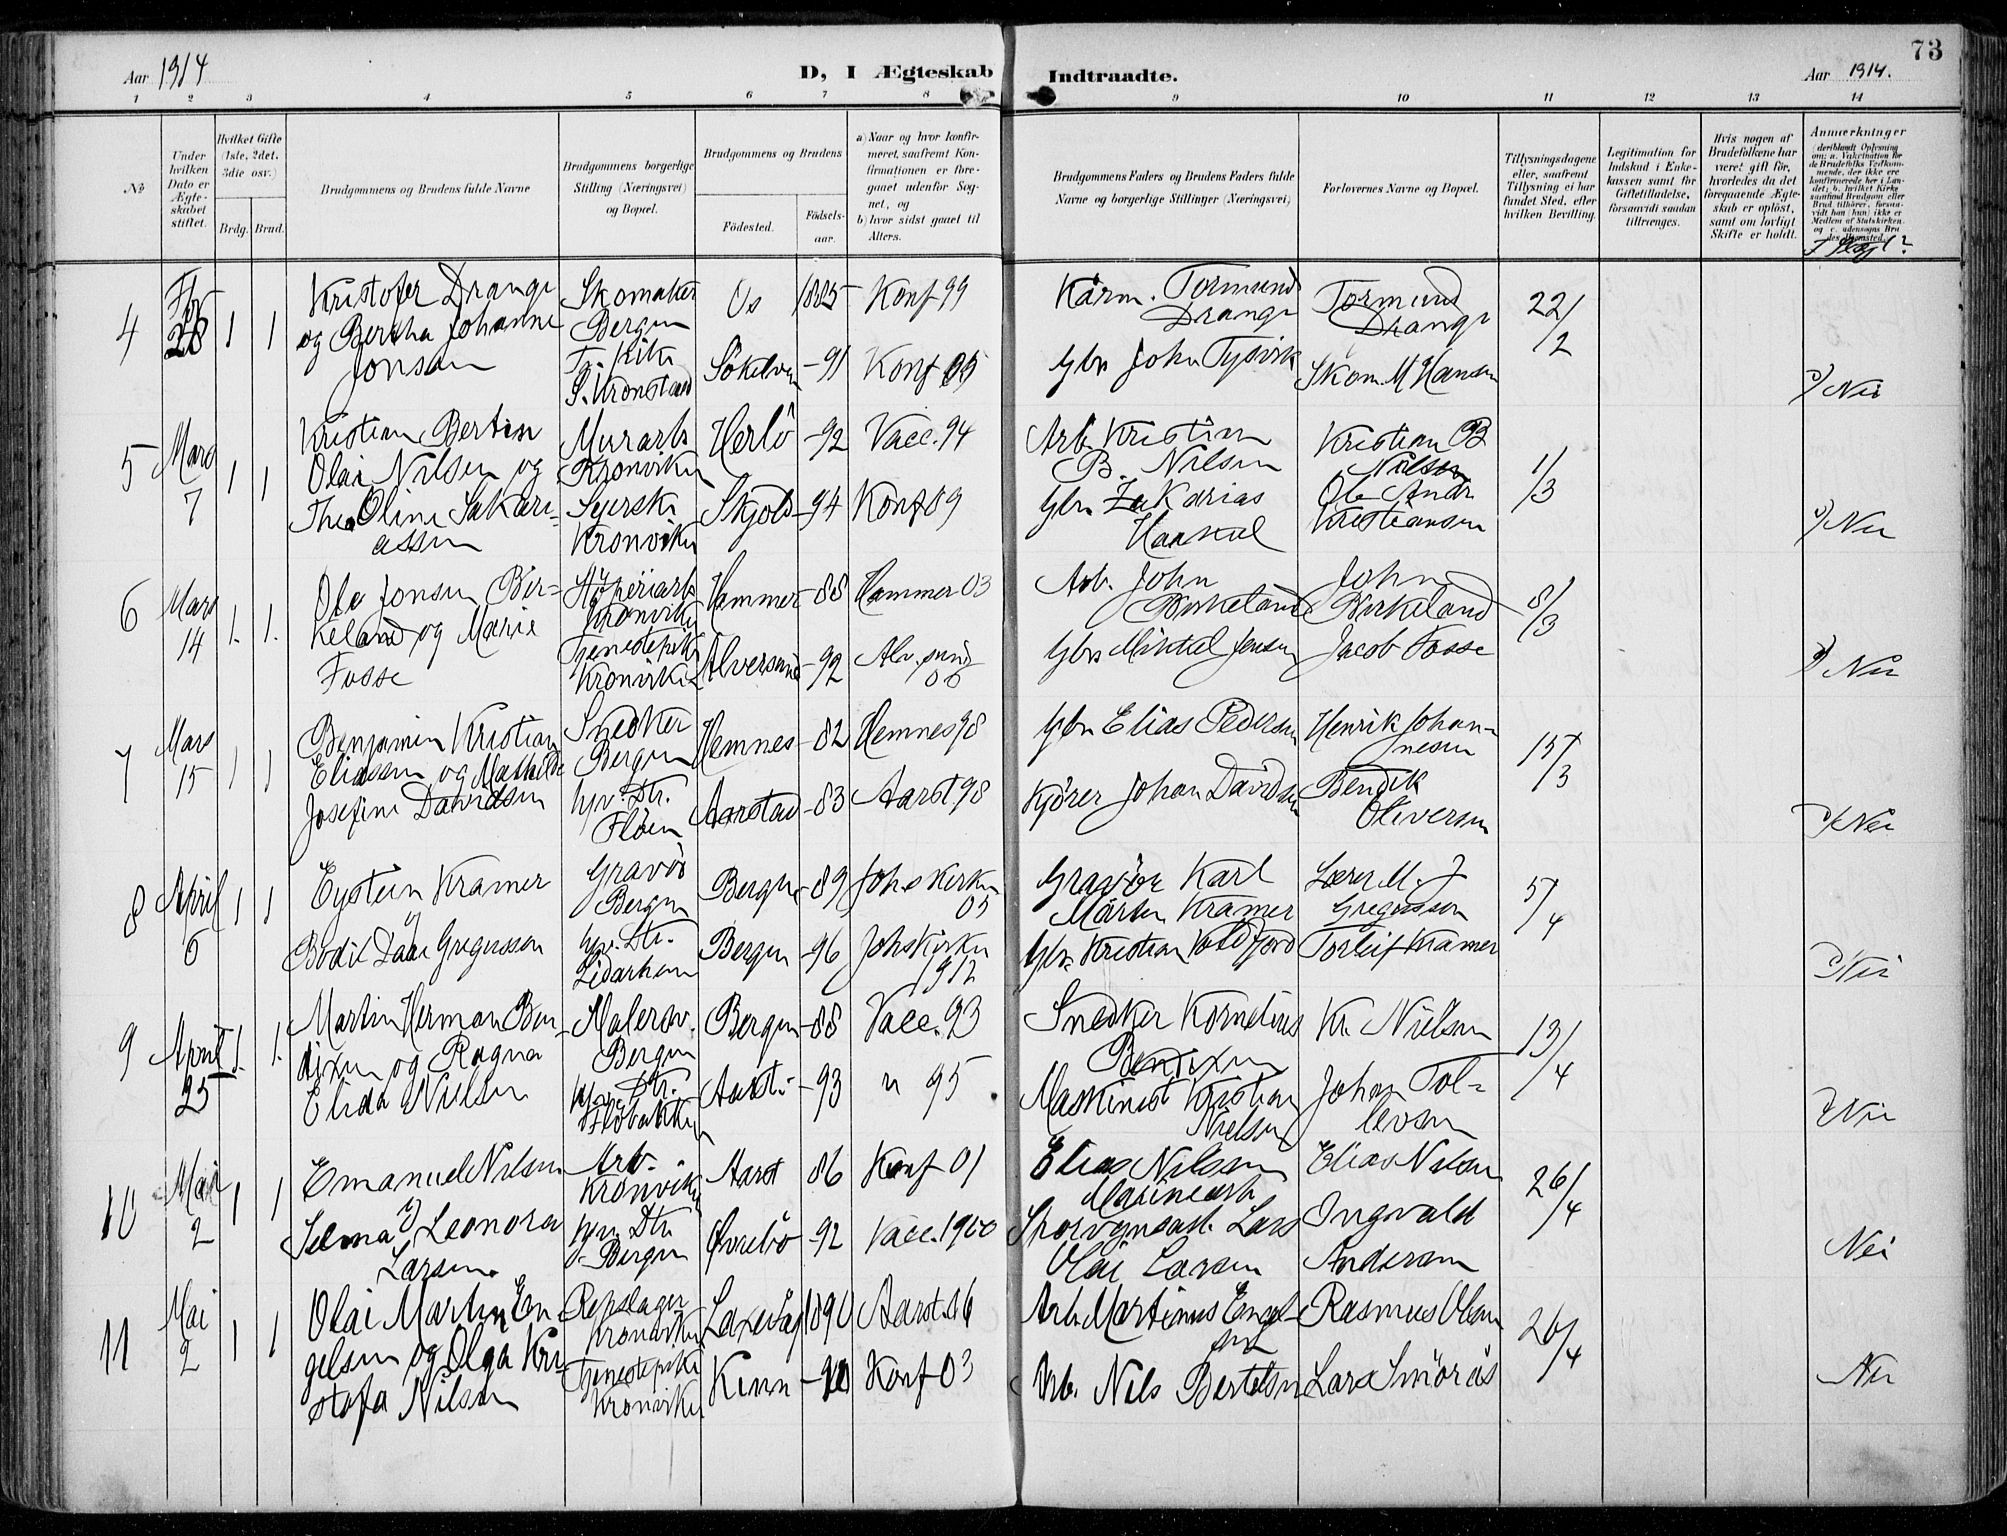 Aar 1914
D, I Ægteskab
Indtraadte.
Aar 1914.
73
1 2 3 4 5 6 7 8 9 10 11 12 13 14
No
Under hvilken Dato er Ægteskabet stiftet.
Hvilket Gifte (1ste, 2det, 3die osv.)
Brdg. Brud.
Brudgommens og Brudens fulde Navne
Brudgommens borgerlige Stilling (Næringsvei) og Bopæl.
Brudgommens og Brudens
Fødested.
Fødselsaar.
a) Naar og hvor konfirmeret, saafremt Konfirmationen er foregaaet udenfor Sognet, og
b) hvor sidst gaaet til Alters.
Brudgommens Faders og Brudens Faders fulde Navne og borgerlige Stillinger (Næringsvei)
Forlovernes Navne og Bopæl.
Tillysningsdagene eller, saafremt Tillysning ei har fundet Sted, efter hvilken Bevilling.
Legitimation for Indskud i Enkekassen samt for Giftetilladelse, forsaavidt saadan tiltrænges.
Hvis nogen af Brudefolkene har været gift før, hvorledes da det foregaaende Ægteskab er opløst, samt om lovligt Skifte er holdt.
Anmærkninger
4 Feb 28 1 1
Kristofer Drange
og Bertha Johanne
Jonsen
Skomaker
Bergen
Kronstad
Os 1885 Konf 99
-91 Konf 05
Tormund
Drange
Gbr John Tysvik
Tormund
Drange
Skom. M Hansen
22/2
Nei
5 Mars 7 1 1
Kristian Bertin
Olai Nilsen og
Thea Oline Sakari-
assen
Murarb
Kronviken
Syerske
Kronviken
Herlö -92 Vacc. 94
Skjold -94 Konf 09
Arb. Kristian
B. Nilsen
Gbr. Zakarias
Kristian B
Nilsen
Ole Andr
Kristiansen
1/3
Nei
6 Mars 14 1. 1.
Ole Jonsen Bir-
keland og Marie
Fosse
Kronviken
Tjenestepike
Kronviken
Hammer -88 Hammer 03
Alversund -92 Alv. sund
06
Arb. John
Birkeland
Gbr Mikal Jensen
John
Birkeland
Jacob Fosse
8/3
Nei
7 Mars 15 1 1
Benjamin Kristian
Eliassen og Mathilde
Josefine Davidsen
Snedker
Bergen
hjv. Dtr.
Flöen
Hemnes -82 Hemnes 98
Aarstad -83 Aarst 98
Gbr Elias Pedersen
Kjörer Johan Davidsen
Henrik Johan-
nesen
Bendik
Oliversen
15/3
Nei
8 April 5 1 1
Eystein Kramer
og
Bodil Daae Gregusson
Gravör
Bergen
hjv. Dtr.
Bergen -89 Joh s kirken
05
Bergen -96 Johskirken
1912
Gravör Karl
Mårten Kramer
Gbr. Kristian
Lærer M. J
Gregusson
Torleif Kramer
5/4
Nei
9 April 25 1. 1.
Martin Herman Ben-
dixen og Ragna
Elida Nielsen
Malersv.
Bergen
hjv. Dtr.
Flöbakken
Bergen -88 Vacc. 93
Aarst. -93 " 95
Snedker Kornelius
Bendixen
Maskinist Kristian
Nielsen
Kr. Nielsen
Johan Tol-
levsen
13/4
Nei
10 Mai 2 1 1
Emanuel Nilsen
og
Selma Leonora
Larsen
Arb.
Kronviken
hjv. Dtr
Bergen
Aarst 86 Konf 01
Övrebö -92 Vacc. 1900
Elias Nilsen
Marinearb
Sporvognsarb. Lars
Olai Larsen
Elias Nilsen
Ingvald
Andersen
26/4
Nei
11 Mai 2 1 1
Olai Martin En-
gelsen og Olga Kri-
stofa Nilsen
Repslager
Kronviken
Tjenestepike
Kronviken
Laxevåg 1890 Aarst. 06
Kinn Konf 03
Arb. Martinus Engel-
sen
Arb. Nils Bertelsen
Rasmus Olsen
Lars Smörås
26/4
Nei